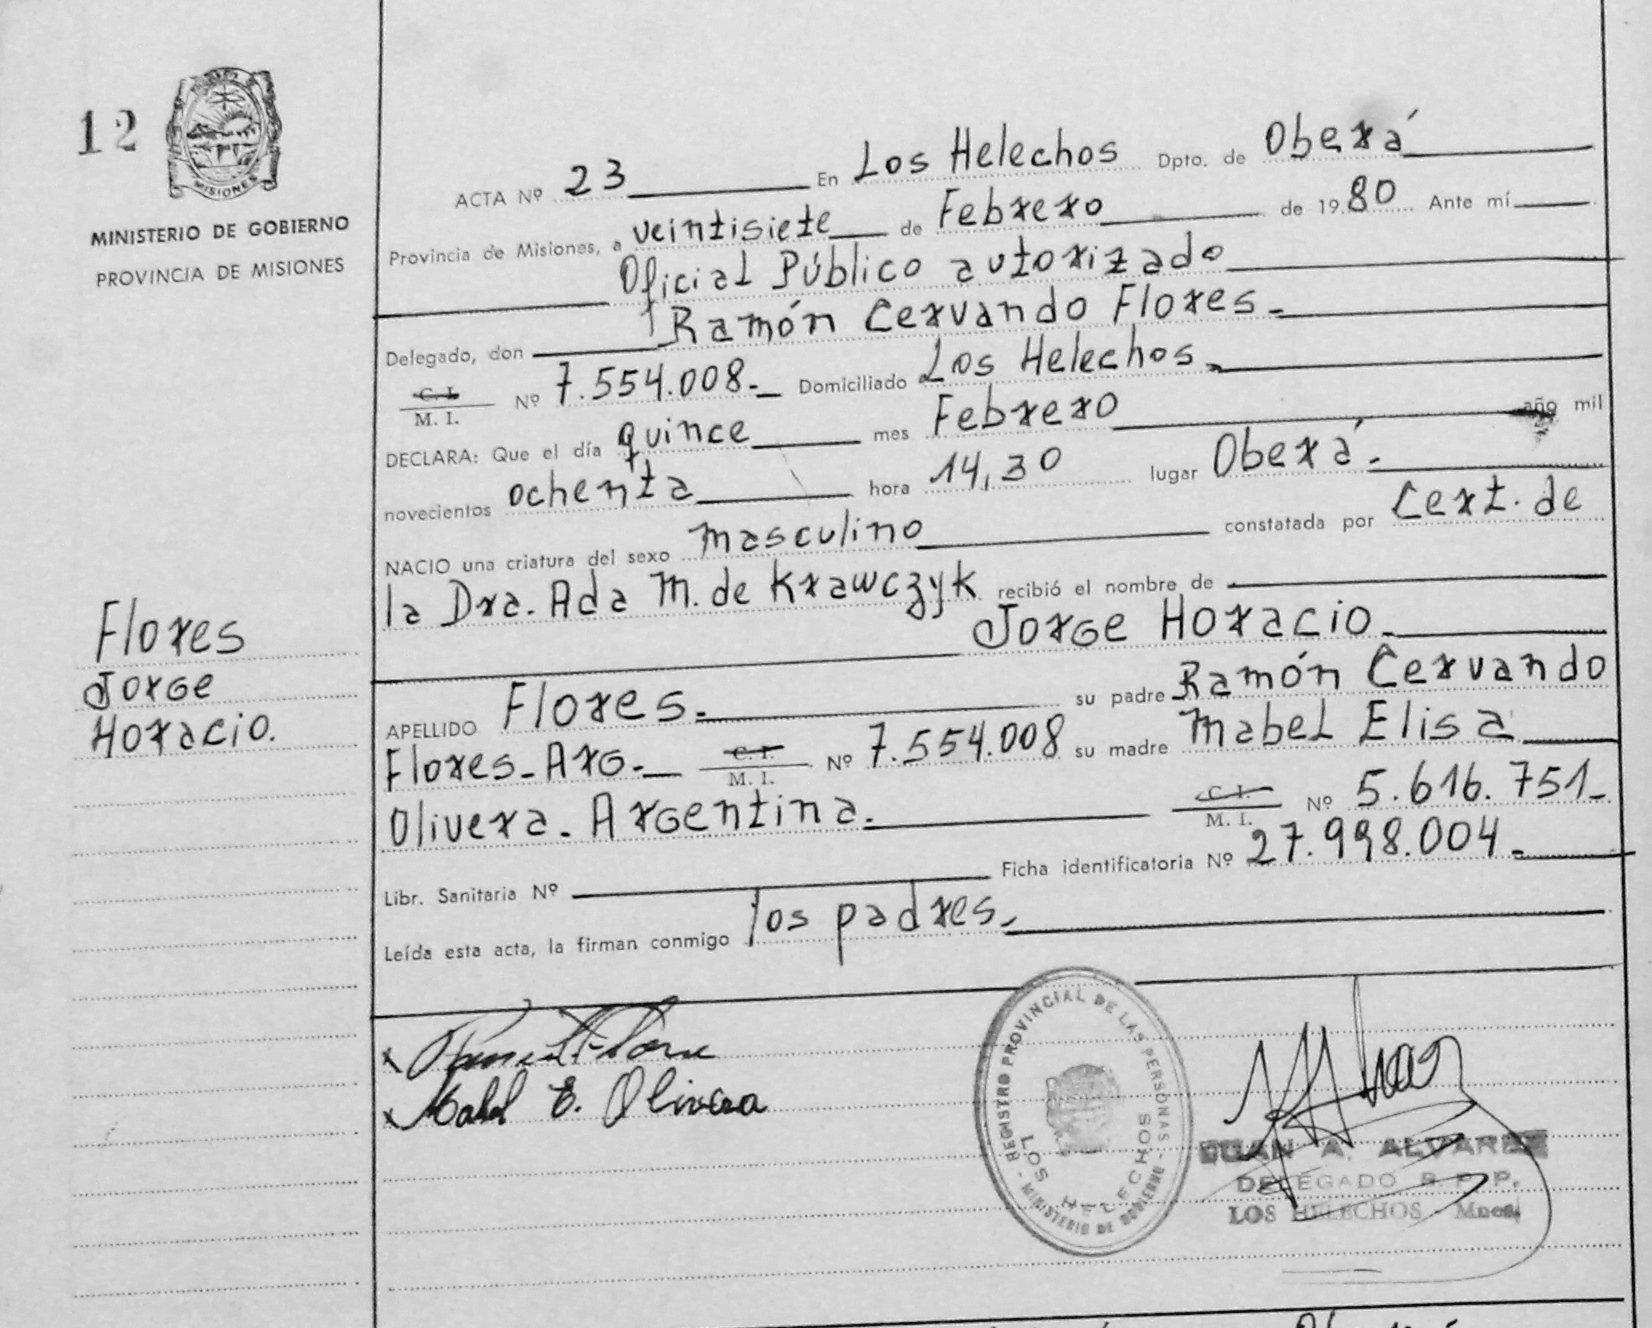 12
MISIONES
MINISTERIO DE GOBIERNO
PROVINCIA DE MISIONES
Flores
Jorge
Horacio.
ACTA Nº 23 En Los Helechos Dpto. de Oberá
Provincia de Misiones, a veintisiete de Febrero de 19 80 Ante mí
Oficial Público autorizado
Delegado, don Ramón Cervando Flores.-
C. I. M. I. Nº 7.554.008.- Domiciliado Los Helechos.
DECLARA: Que el día quince mes Febrero año mil
novecientos ochenta hora 14,30 lugar Oberá.-
NACIO una criatura del sexo masculino constatada por Cert. de
la Dra. Ada M. de Krawczyk recibió el nombre de
Jorge Horacio.
APELLIDO Flores.- su padre Ramón Cervando
Flores- Arg.- C. I. M. I. Nº 7.554.008 su madre Mabel Elisa
Olivera. Argentina. C. I. M. I. Nº 5.616.751-
Libr. Sanitaria Nº Ficha identificatoria Nº 27.998.004.-
Leída esta acta, la firman conmigo los padres.-
x
x Mabel E. Olivera
REGISTRO PROVINCIAL DE LAS PERSONAS
LOS HELECHOS
MINISTERIO DE GOBIERNO
JUAN A. ALVAREZ
DELEGADO R. P. P.
LOS HELECHOS - Mnes.